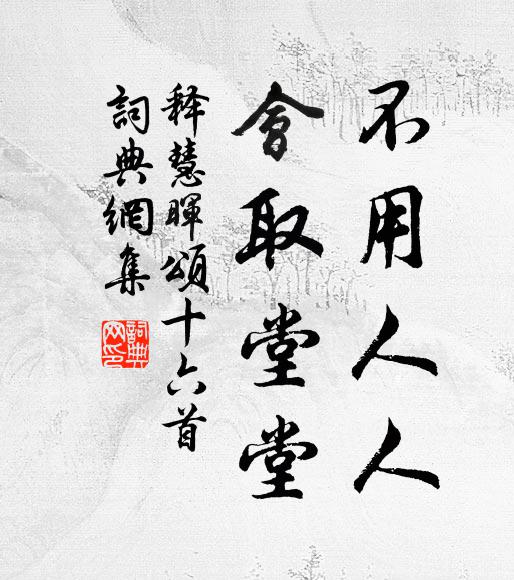 不用人人
會取堂堂
释慧暉頌十六首
詞典網集
詞典網印